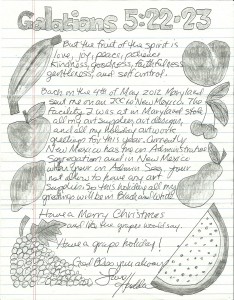 Galations 5:22-23
But the fruit of the spirit is
love, joy, peace, patience
kindness, goodness, faithfulness
gentleness, and self control.
Back on the 4th of May 2012 Maryland
sent me on an ICC to New Mexico. The
Facility I was at in Maryland stole
all my art supplies, art designs,
and all my holiday artwork
greetings for this year. Currently
New Mexico has me on Administrative
Segregation and in New Mexico
when your on Admin Seg, your
not allow to have any art
Supplies. So this holiday all my
greetings will be in Black and White.
Have a Merry Christmas
and like the grapes would say.
Have a grape holiday!
God Bless you always